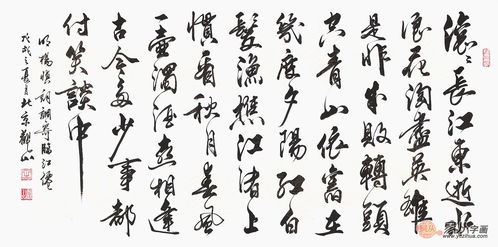 滚滚长江东逝水
浪花淘尽英雄
是非成败转头
空青山依旧在
几度夕阳红白
发渔樵江渚上
惯看秋月春风
一壶浊酒喜相逢
古今多少事都
付笑谈中
明杨慎词调寄临江仙
北京观山
易从字画
www.yizihua.com